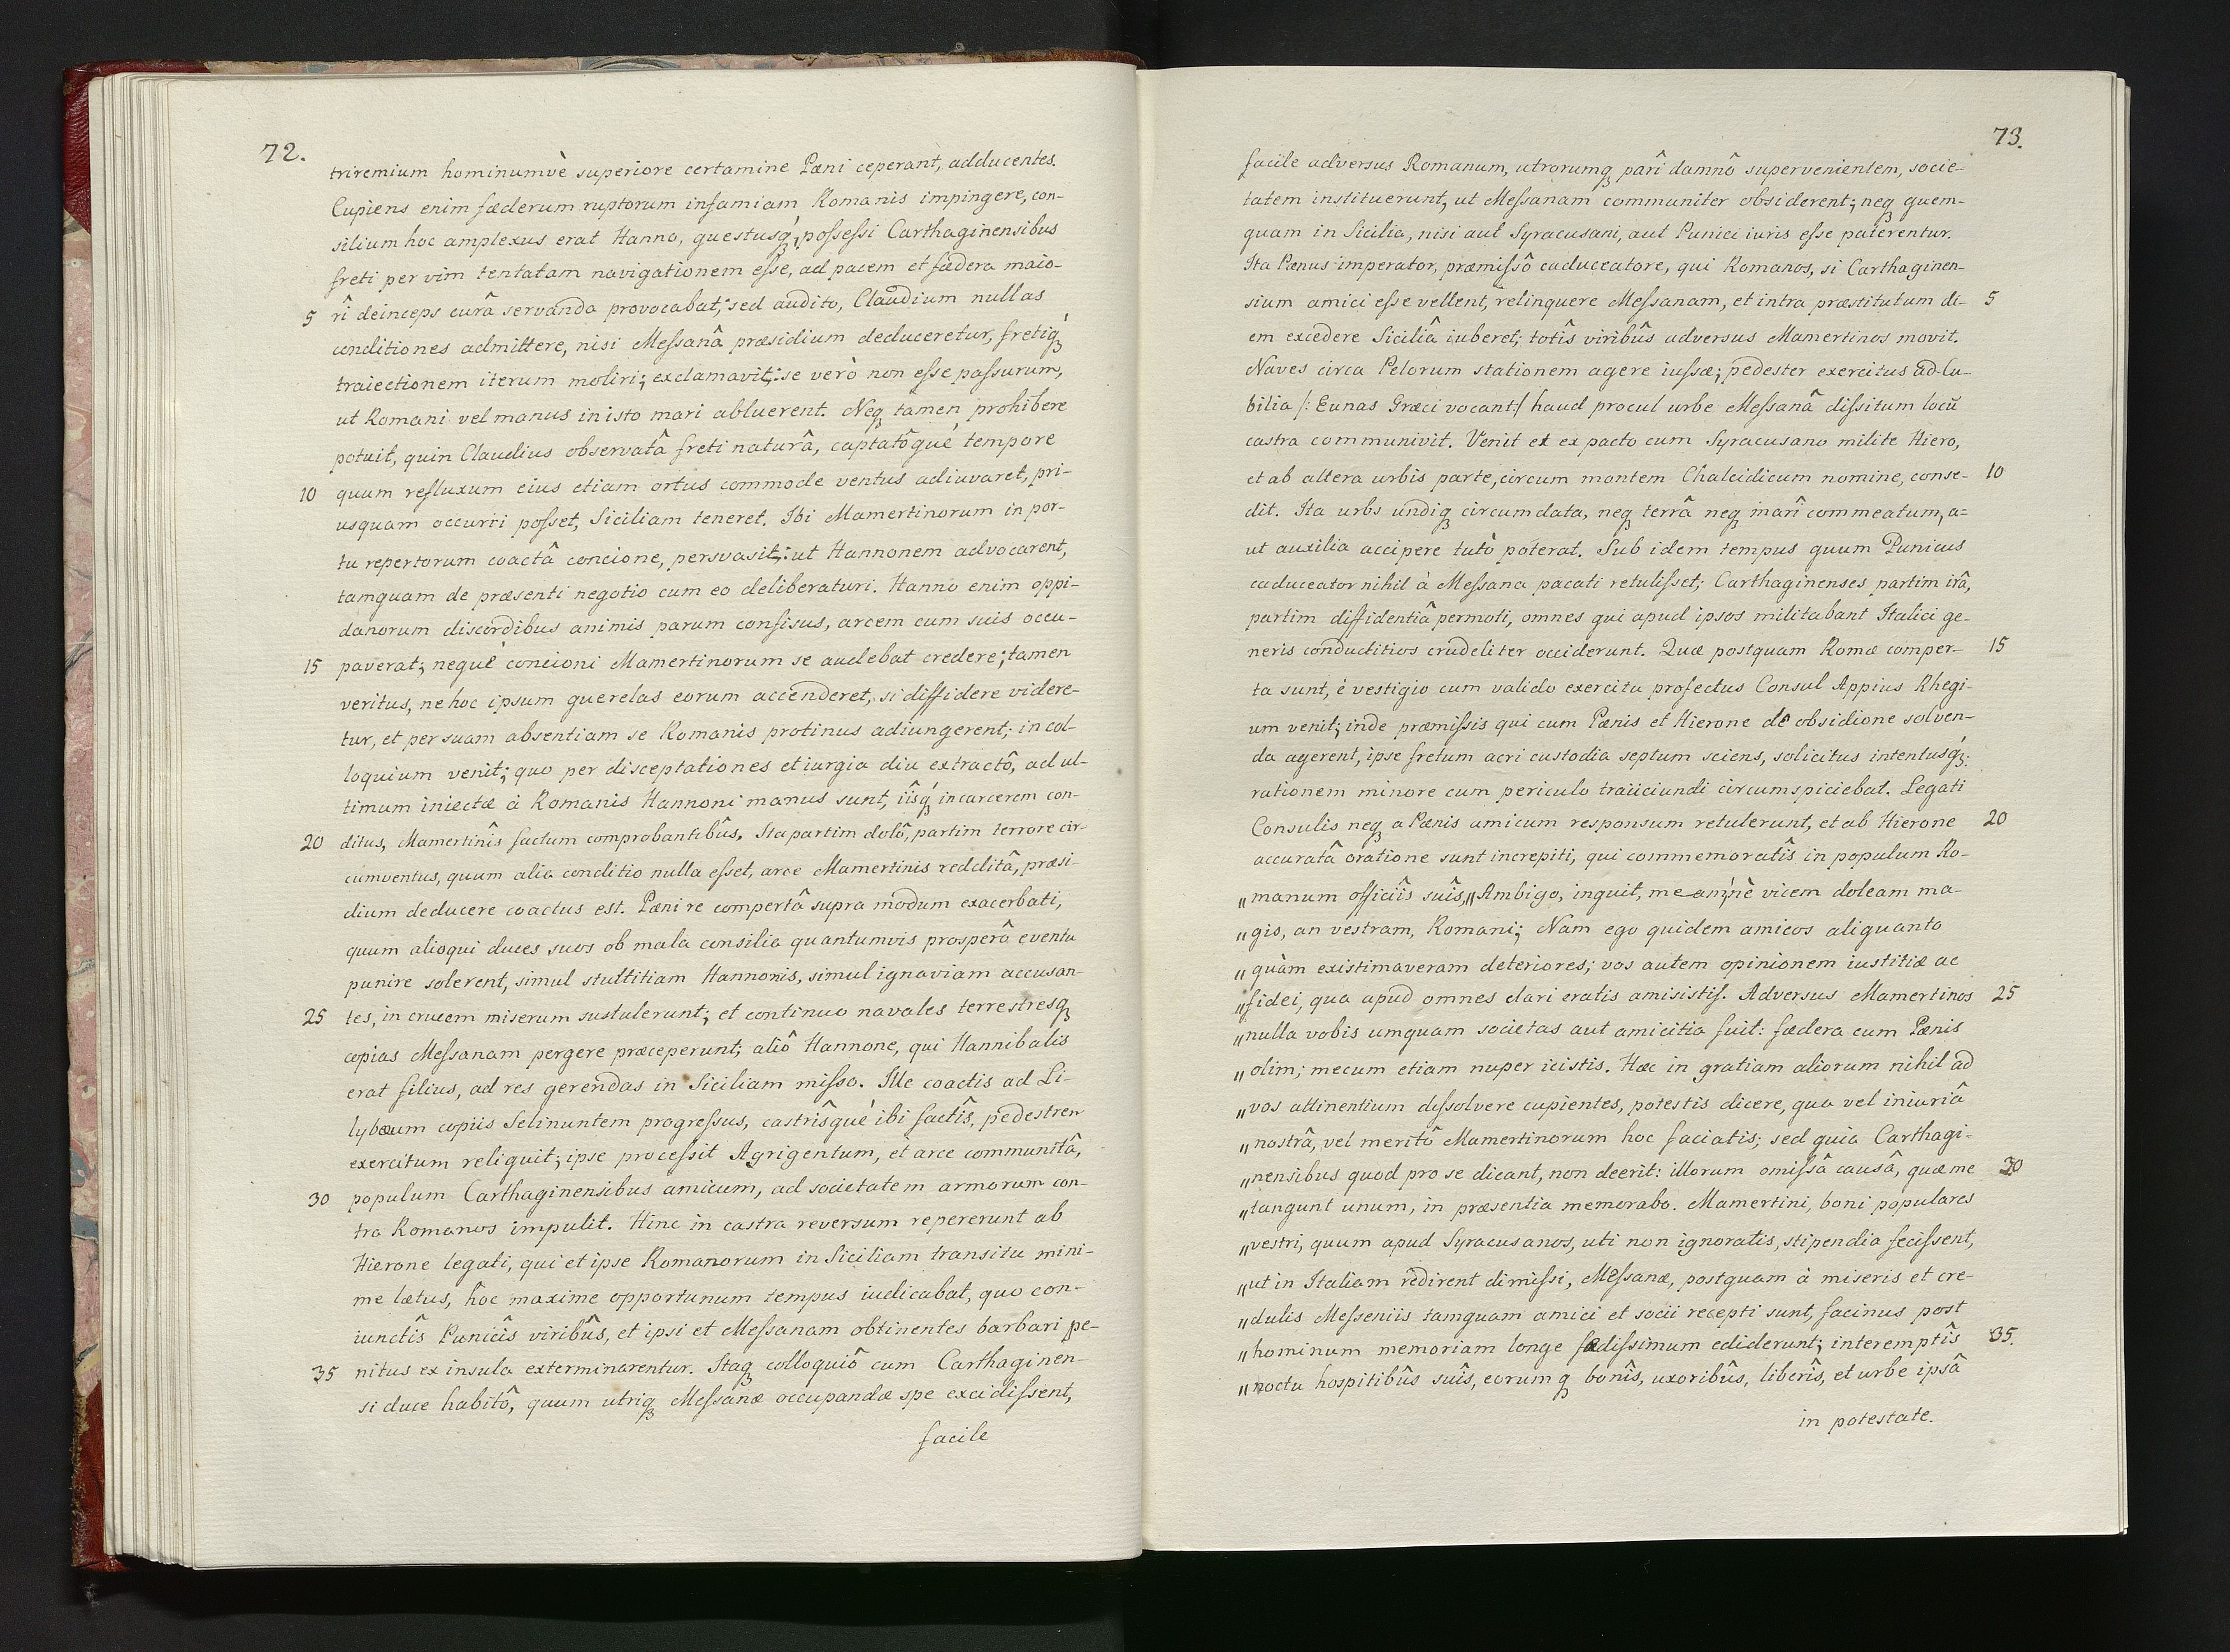 72.
triremium hominumvè superiore certamine Pæni ceperant, adducentes.
Cupiens enim fæderum ruptorum infamiam Romanis impingere, con-
silium hoc amplexus erat Hanno, questusq́ꝫ, poſseſsi Carthaginensibus
freti per vim tentatam navigationem eſse, ad pacem et fædera maio-
5 rî deinceps curâ servanda provocabat; sed audito, Claudium nullas
conditiones admittere, nisi Meſsanâ præsidium deduceretur, fretiq́ꝫ
traiectionem iterum moliri; exclamavit: se verò non eſse paſsurum,
ut Romani vel manus in isto mari abluerent. Neqꝫ tamen prohibere
potuit, quin Claudius observatâ freti naturâ, captatôqué tempore
10 quum refluxum eius etiam ortus commode ventus adiuvaret, pri-
usquam occurri poſset, Siciliam teneret. Ibi Mamertinorum in por-
tu repertorum coactâ concione, persvasit: ut Hannonem advocarent,
tamquam de præsenti negotio cum eo deliberaturi. Hanno enim oppi-
danorum discordibus animis parum confisus, arcem cum suis occu-
15 paverat; nequé concioni Mamertinorum se audebat credere; tamen
veritus, ne hoc ipsum querelas eorum accenderet, si diffidere videre-
tur, et per suam absentiam se Romanis protinus adiungerent; in col-
loquium venit; quo per disceptationes et iurgia diu extractô, ad ul-
timum iniectæ à Romanis Hannoni manus sunt, iîsq́ꝫ in carcerem con-
20 ditus, Mamertinîs factum comprobantibûs. Ita partim dolô, partim terrore cir-
cumventus, quum alia conditio nulla eſset, arce Mamertinis redditâ, præsi-
dium deducere coactus est. Pæni re compertâ supra modum exacerbati,
quum alioqui duces suos ob mala consilia quantumvis prosperô eventu
punire solerent, simul stultitiam Hannonis, simul ignaviam accusan-
25 tes, in crucem miserum sustulerunt; et continuo navales terrestresqꝫ
copias Meſsanam pergere præceperunt; aliô Hannone, qui Hannibalis
erat filius, ad res gerendas in Siciliam miſso. Ille coactis ad Li-
lybæum copiis Selinuntem progreſsus, castrîsqué ibi factîs, pedestrem
exercitum reliquit; ipse proceſsit Agrigentum, et arce communitâ,
30 populum Carthaginensibus amicum, ad societatem armorum con-
tra Romanos impulit. Hinc in castra reversum repererunt ab
Hierone legati, qui et ipse Romanorum in Siciliam transitu mini-
me lætus, hôc maxime opportunum tempus iudicabat, quo con-
iunctîs Punicîs viribûs, et ipsi et Meſsanam obtinentes barbari pe-
35 nitus ex insula exterminarentur. Itaqꝫ colloquiô cum Carthaginen-
si duce habitô, quum utriqꝫ Meſsanæ occupandæ spe excidiſsent,
facile
73.
facile adversus Romanum, utrorumqꝫ parî damnô supervenientem, socie-
tatem instituerunt, ut Meſsanam communiter obsiderent; neqꝫ quem-
quam in Sicilia, nisi aut Syracusani, aut Punici iuris eſse paterentur.
Ita Pænus imperator, præmiſsô caduceatore, qui Romanos, si Carthaginen-
sium amici eſse vellent, relinquere Meſsanam, et intra præstitutum di- 5
em excedere Siciliâ iuberet; totîs viribûs adversus Mamertinos movit.
Naves circa Pelorum stationem agere iuſsæ; pedester exercitus ad Cu-
bilia /: Eunas Græci vocant:/ haud procul urbe Meſsanâ diſsitum locũ
castra communivit. Venit et ex pacto cum Syracusano milite Hiero,
et ab altera urbis parte, circum montem Chalcidicum nomine, conse- 10
dit. Ita urbs undiqꝫ circumdata, neqꝫ terrâ neqꝫ marî commeatum, a=
ut auxilia accipere tutò poterat. Sub idem tempus quum Punicus
caduceator nihil à Meſsana pacati retuliſset; Carthaginenses partim irâ,
partim diffidentiâ permoti, omnes qui apud ipsos militabant Italici ge-
neris conductitios crudeliter occiderunt. Quæ postquam Romæ comper- 15
ta sunt, è vestigio cum valido exercitu profectus Consul Appius Rhegi-
um venit; inde præmiſsis qui cum Pænis et Hierone de obsidione solven-
da agerent, ipse fretum acri custodia septum sciens, solicitus intentusq́ꝫ
rationem minore cum periculo traiiciundi circumspiciebat. Legati
Consulis neqꝫ a Pænis amicum responsum retulerunt, et ab Hierone 20
accuratâ oratione sunt increpiti, qui commemoratîs in populum Ro-
„ manum officiîs suîs, „Ambigo, inquit, meamnè vicem doleam ma-
„ gis, an vestram, Romani; Nam ego quidem amicos aliquanto
„ quàm existimaveram deteriores; vos autem opinionem iustitiæ ac
„ fidei, qua apud omnes clari eratis amisistis. Adversus Mamertinos 25
„ nulla vobis umquam societas aut amicitia fuit: fædera cum Pænis
„ olim; mecum etiam nuper icistis. Hæc in gratiam aliorum nihil ad
„ vos attinentium diſsolvere cupientes, potestis dicere, qua vel iniuriâ
„ nostrâ, vel meritô Mamertinorum hoc faciatis; sed quia Carthagi-
„ nensibus quod pro se dicant, non deerit: illorum omiſsâ causâ, quæ me 30
„ tangunt unum, in præsentia memorabo. Mamertini, boni populares
„ vestri, quum apud Syracusanos, uti non ignoratis, stipendia feciſsent,
„ ut in Italiam redirent dimiſsi, Meſsanæ, postquam à miseris et cre-
„ dulis Meſseniis tamquam amici et socii recepti sunt, facinus post
„ hominum memoriam longe fædiſsimum ediderunt; interemptîs 35.
„ noctu hospitibûs suîs, eorumqꝫ bonîs, uxoribûs, liberîs, et urbe ipsâ
in potestate.